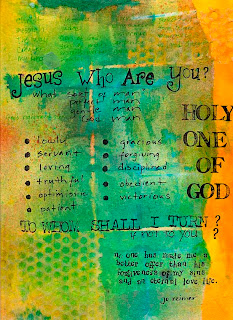 Jesus Who Are You?
What sort of man?
perfect man
gentle man
God man
HOLY
ONE
OF
GOD
lowly
servant
loving
truthful
optimistic
patient
gracious
forgiving
disciplined
obedient
victorious
TO WHOM SHALL I TURN?
if not to you ?
no one has made me a
better offer than His
forgiveness of my sins
and an eternal love life.